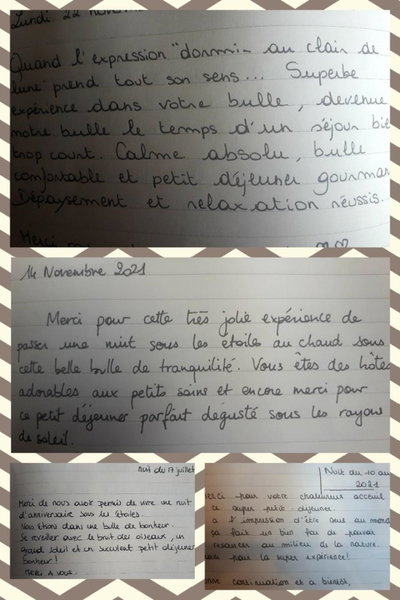 Lundi 22 novem
Quand l'expression "dormir au clair de
lune" prend tout son sens... Superbe
expérience dans votre bulle, devenue
notre bulle le temps d'un séjour bien
trop court. Calme absolu, bulle
confortable et petit déjeuner gourman
Dépaysement et relaxation réussis.
Merci
14 Novembre 2021
Merci pour cette très jolie expérience de
passer une nuit sous les étoiles au chaud sous
cette belle bulle de tranquilité. Vous êtes des hôtes
adorables aux petits soins et encore merci pour
ce petit déjeuner parfait dégusté sous les rayons
de soleil.
Nuit du 17 juillet
Merci de nous avoir permis de vivre une nuit
d'anniversaire sous les étoiles.
Nous étions dans une bulle de bonheur.
Se réveiller avec le bruit des oiseaux, un
grand soleil et un succulent petit déjeuner
bonheur!
Merci à vous.
Nuit du 10 aou
2021
erci pour votre chaleureux accueil
ce super petit déjeuner.
a l'impression d'être seul au monde
ça fait un bien fou de pouvoir
ressourcer au milieu de la nature.
pour la super expérience!
continuation et à bientôt,